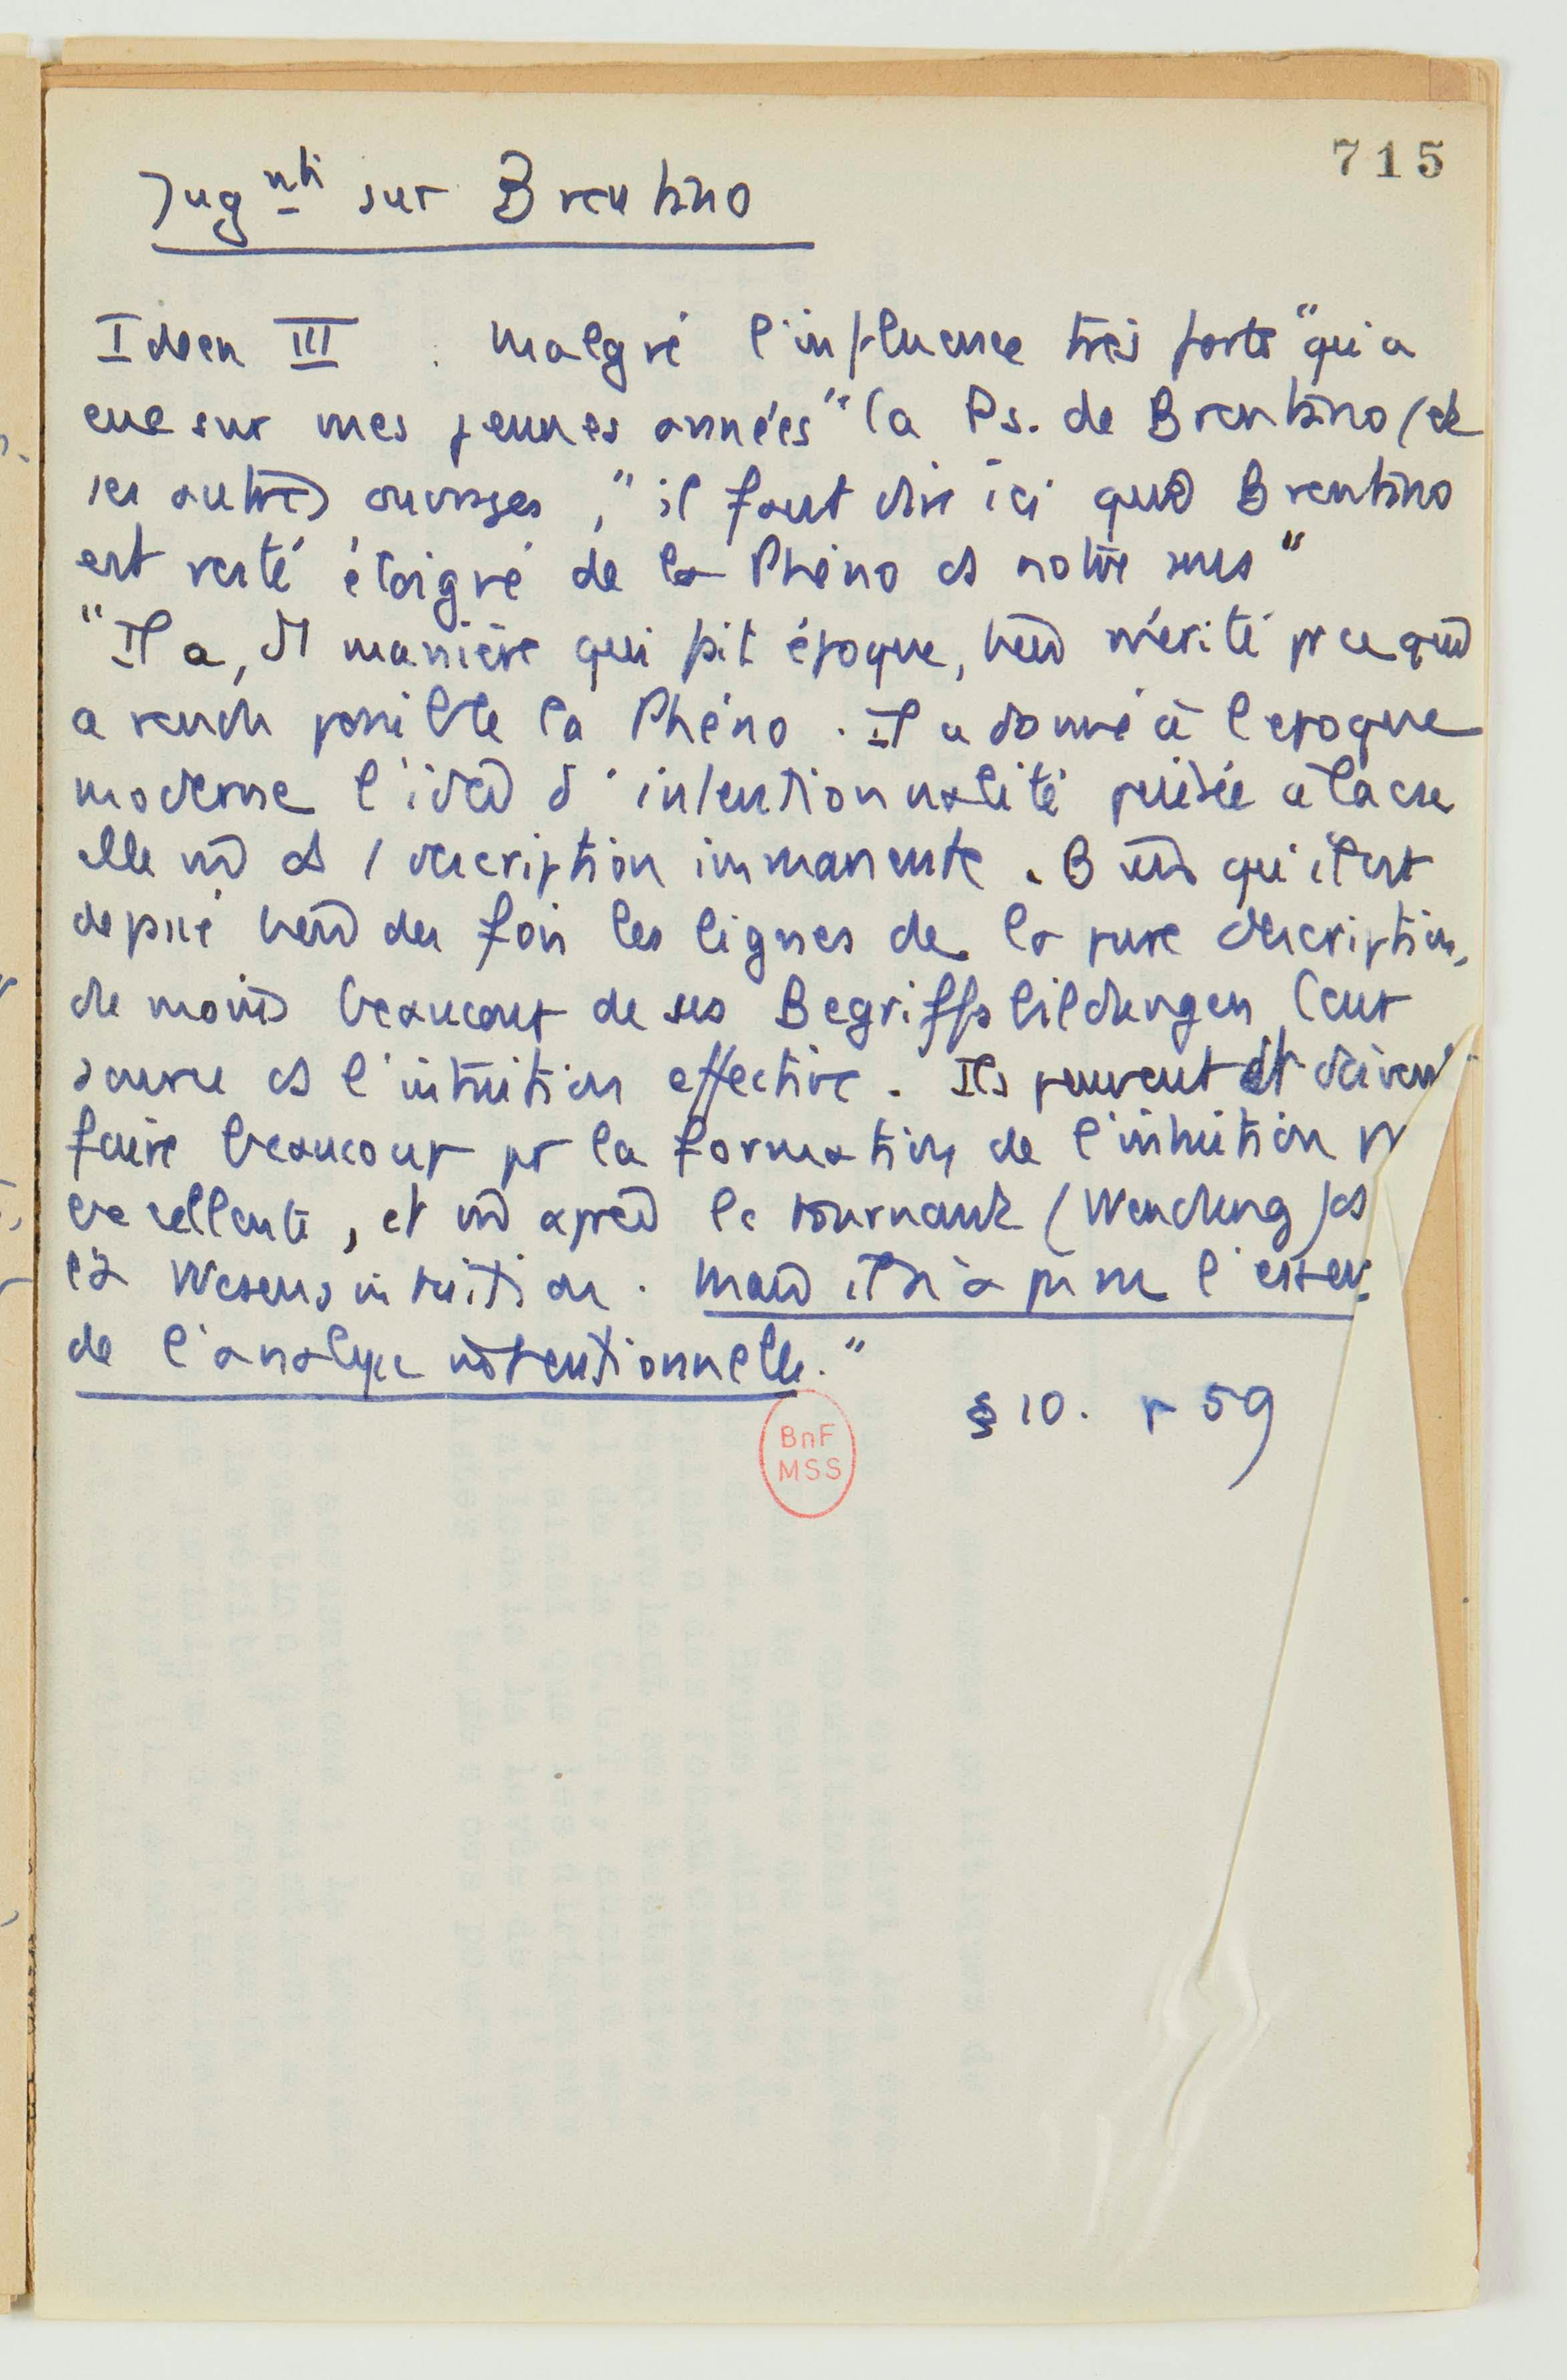 715
Jugnts sur Brentano
Ideen III . Malgré l'influence très forte "qu'a
eue sur mes jeunes années" la Ps. de Brentano (et
ses autres ouvrages, "il faut dire ici que Brentano
est resté éloigné de la Phéno ds notre sens"
"Il a, d'1 manière qui fit époque, bien mérité pr ce qu'il
a rendu possible la Phéno . Il a donné à l'époque
moderne l'idée d'intentionnalité puisée à la cse
elle md ds 1 description immanente . Bien qu'il ait
dépassé bien des fois les lignes de la pure description,
du moins beaucoup de ses Begriffsbildungen leur
source ds l'intuition effective . Ils peuvent et doivent
faire beaucoup pr la formation de l'intuition
excellente, et md après le tournant (Wendung) ds
la Wesensintuition . Mais il n'a pas vu l'essen
de l'analyse intentionnelle."
§ 10. p 59
BnF
MSS